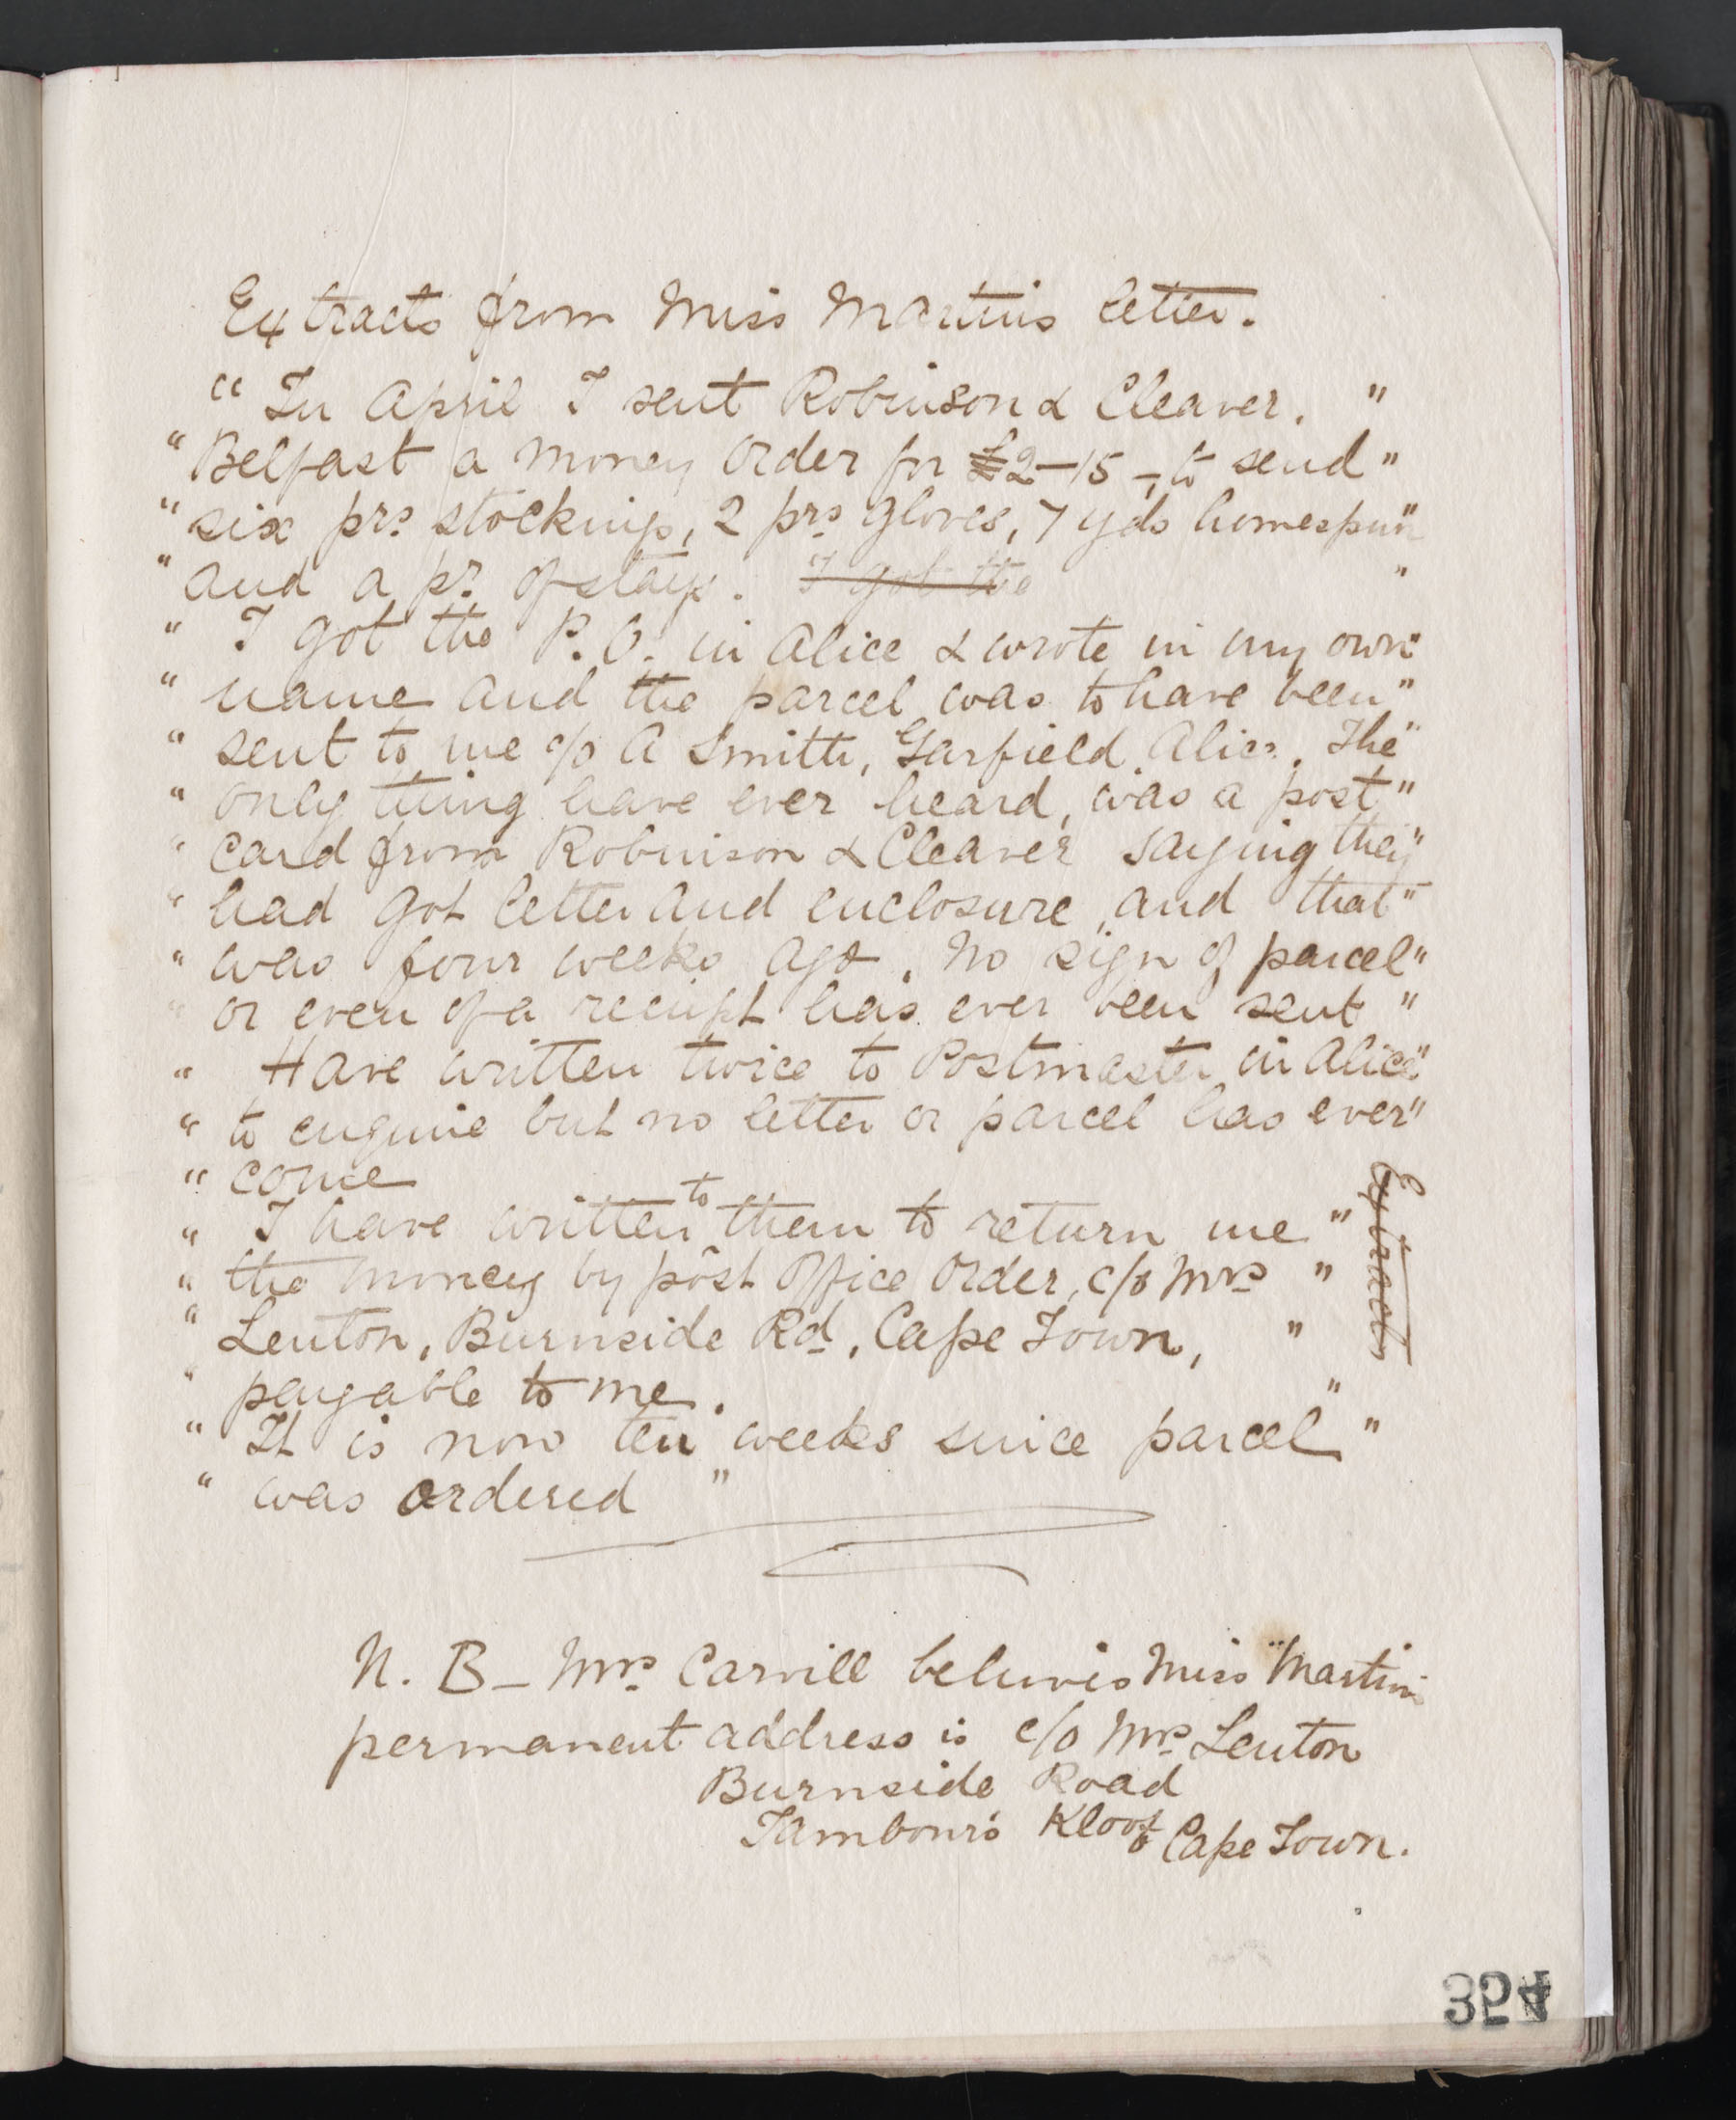 Extracts from Miss Martins letter.
"In April I sent Robinson & Cleaver. "
"Belfast a money order for £2-15-, to send"
"six prs stockings, 2 prs gloves, 7 yds homespun"
"and a pr. of stays. I got the "
" I got the P.O. in Alice & wrote in my own"
" name and the parcel was to have been"
" sent to me c/o A Smith, Garfield Alice. The"
" only thing have ever heard, was a post"
" card from Robinson & Cleaver saying they"
" had got letter and enclosure, and that"
" was four weeks ago. No sign of parcel"
" or even of a receipt has ever been sent "
" Have written twice to Postmaster in Alice"
" to enquire but no letter or parcel has ever"
" come
" I have written to them to return me "
" the money by post Office Order, c/o Mrs "
" Lenton, Burnside Rd, Cape Town, "
" payable to me. "
" It is now ten weeks since parcel "
" was ordered "
Extracts
N. B - Mrs Carvill believes Miss Martins
permanent address is c/o Mrs Lenton
Burnside Road
Tambour's Kloof Cape Town.
354